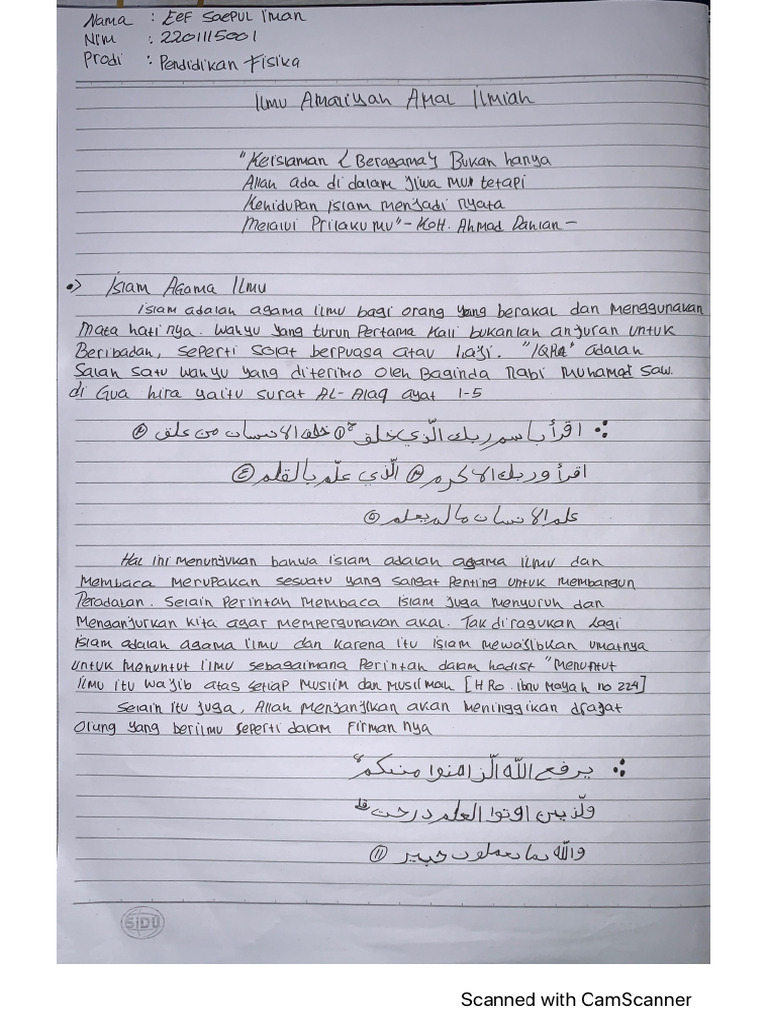 Nama : Eef Saepul iman
Nim : 2201115001
Prodi : Pendidikan Fisika
Ilmu Amaliyah Amal Ilmiah
"Keislaman (Beragama) Bukan hanya
Allah ada di dalam jiwa mu tetapi
Kehidupan islam menjadi nyata
Melalui Prilaku mu" - KoH. Ahmad Dahlan -
•) Islam Agama Ilmu
islam adalah agama ilmu bagi orang yang berakal dan menggunakan
Mata hati nya. wahyu yang turun Pertama kali bukanlah anjuran untuk
Beribadah, seperti solat berpuasa atau haji. "IQRA" adalah
Salah satu wahyu yang diterimo oleh Baginda Nabi Muhamad Saw.
di Gua hira yaitu surat AL-Alaq ayat 1-5
اقرأ باسم ربك الّذي خلق ① خلق الانسان من علق ②
اقرأ وربك الاكرم ③ الّذي علّم بالقلم ④
علم الانسان مالم يعلم ⑤
Hal ini menunjukan bahwa islam adalah agama ilmu dan
Membaca merupakan sesuatu yang sangat Penting untuk membangun
Peradaban. Selain Perintah membaca islam juga menyuruh dan
Menganjurkan kita agar mempergunakan akal. Tak diragukan lagi
islam adalah agama ilmu dan karena itu islam mewajibkan umatnya
untuk menuntut ilmu sebagaimana Perintah dalam hadist "menuntut
ilmu itu wajib atas setiap muslim dan muslimah [H Ro. ibnu Mayah no 224]
Selain itu juga, Allah menjanjikan akan meninggikan drajat
Olung yang berilmu seperti dalam Firman nya
يرفع الله الّذ امنوا منكم
ولّذ يين اوتوا العلم درجت
والله بما تعملون خبير ⑪
SiDU
Scanned with CamScanner